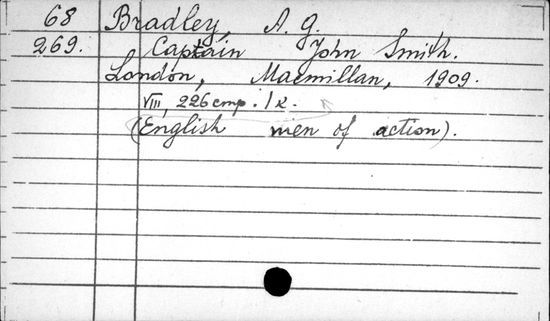 68 Bradley, A. G.
269. Captain John Smith.
London, Macmillan, 1909.
VIII, 226 стр. 1 к.
(English men of action).